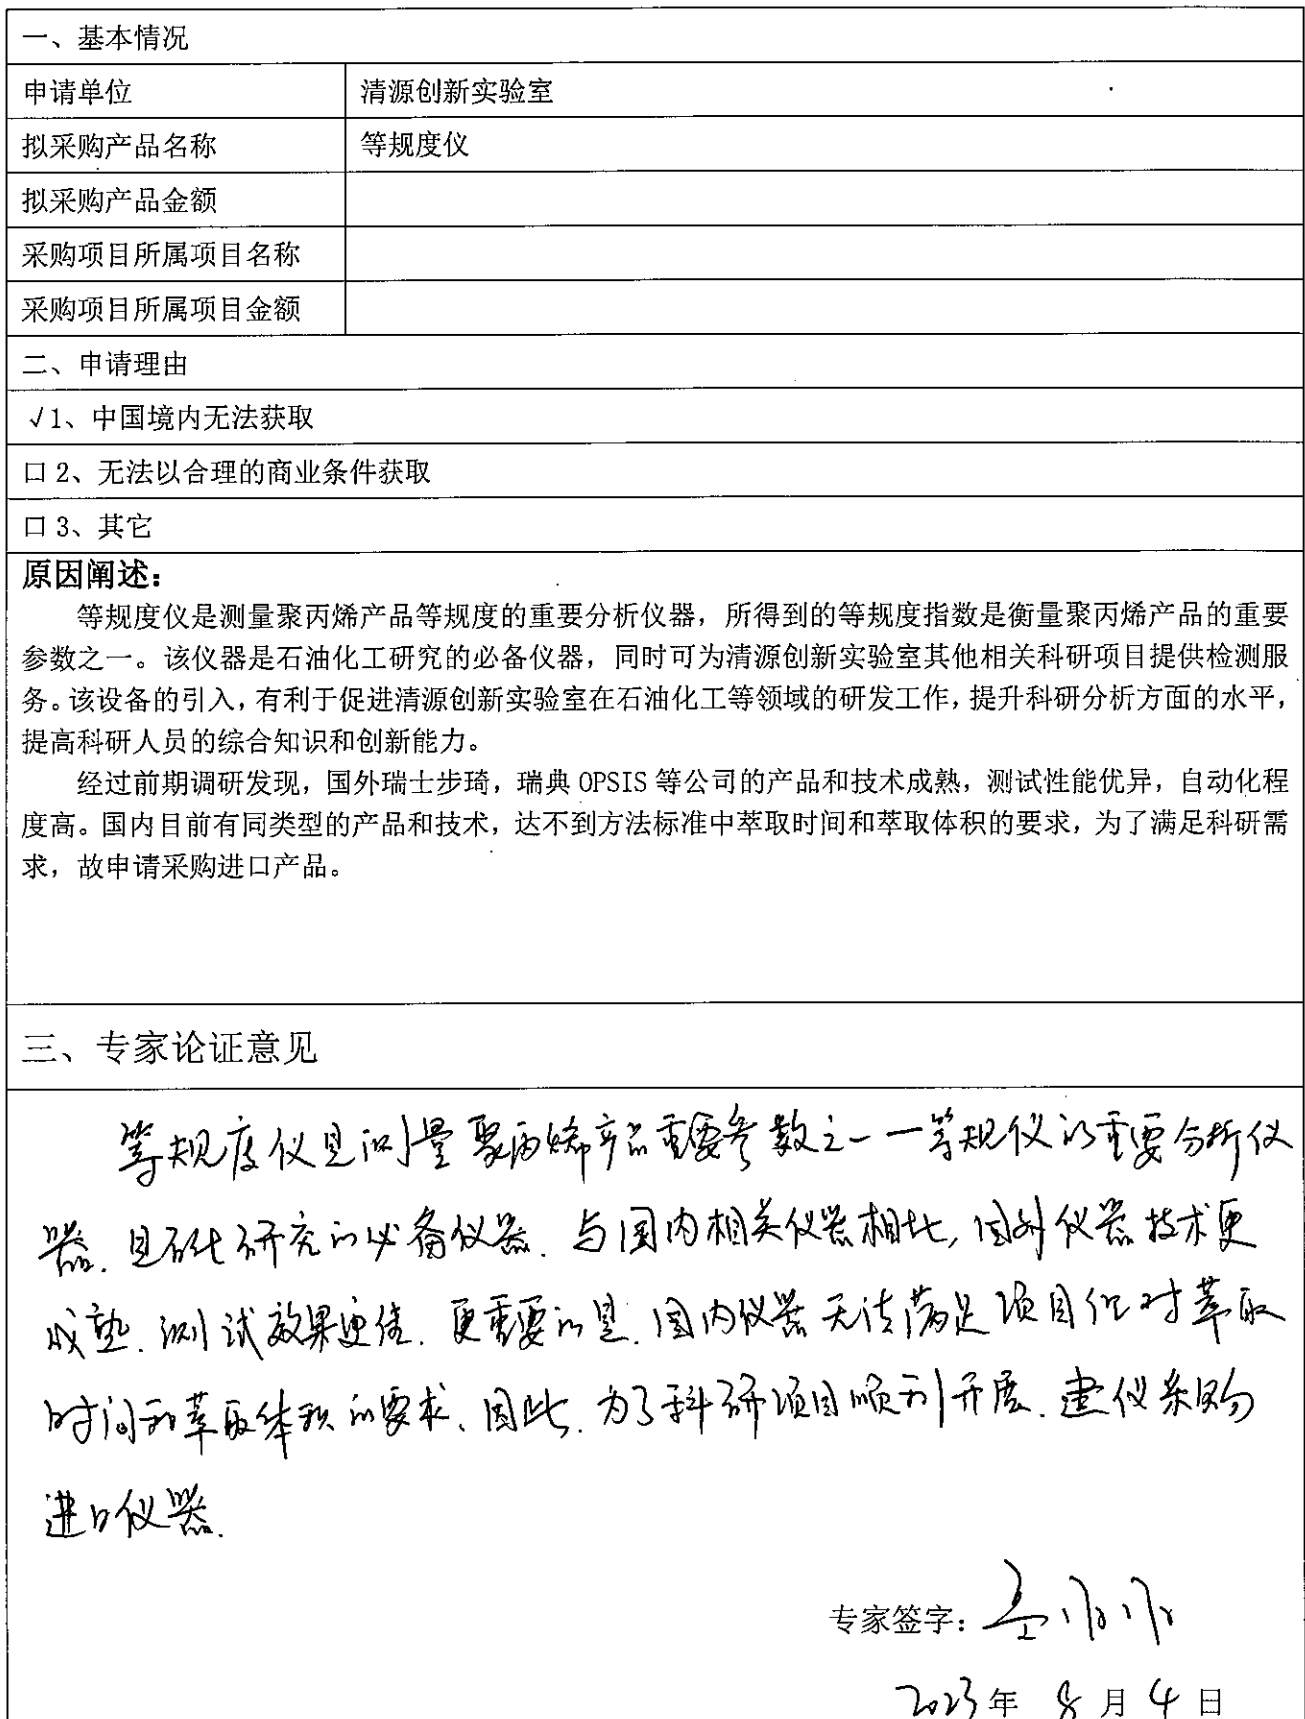 一、基本情况
申请单位 清源创新实验室
拟采购产品名称 等规度仪
拟采购产品金额
采购项目所属项目名称
采购项目所属项目金额
二、申请理由
√1、中国境内无法获取
口2、无法以合理的商业条件获取
口3、其它
原因阐述：
等规度仪是测量聚丙烯产品等规度的重要分析仪器，所得到的等规度指数是衡量聚丙烯产品的重要
参数之一。该仪器是石油化工研究的必备仪器，同时可为清源创新实验室其他相关科研项目提供检测服
务。该设备的引入，有利于促进清源创新实验室在石油化工等领域的研发工作，提升科研分析方面的水平，
提高科研人员的综合知识和创新能力。
经过前期调研发现，国外瑞士步琦，瑞典 OPSIS 等公司的产品和技术成熟，测试性能优异，自动化程
度高。国内目前有同类型的产品和技术，达不到方法标准中萃取时间和萃取体积的要求，为了满足科研需
求，故申请采购进口产品。
三、专家论证意见
等规度仪是测量聚丙烯产品重要参数之一一等规仪的重要分析仪
器.是石化研究的必备仪器.与国内相关仪器相比,国外仪器技术更
成熟.测试效果更佳.更重要的是.国内仪器无法满足项目 对萃取
时间和萃取体积的要求、因此.为了科研项目顺利开展.建仪采购
进口仪器.
专家签字：
2023年 8月4日